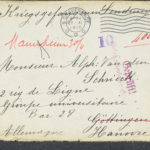 Kriegsgefangenen Sendung
Mannheim
Monsieur Alph. Vanden
Schrieck
2 rue de Ligne
Groupe universitaire
Bar 28
Göttingen
Allemagne
Hanovre